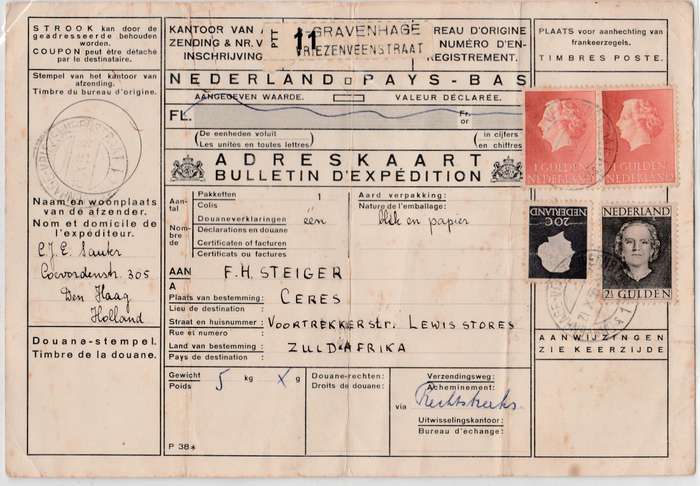 STROOK kan door de
geadresseerde behouden
worden.
COUPON peut être détaché
par le destinataire.
Stempel van het kantoor van
afzending.
Timbre du bureau d'origine.
Naam en woonplaats
van de afzender.
Nom et domicile de
l'expéditeur.
Coevordenstr. 305
Den Haag
Holland
Douane-stempel.
Timbre de la douane.
KANTOOR VAN A
ZENDING & NR. V
INSCHRIJVING
PTT
11
GRAVENHAGE
VRIEZENVEENSTRAAT
REAU D'ORIGINE
NUMÉRO D'EN-
REGISTREMENT.
NEDERLAND PAYS-BAS
AANGEGEVEN WAARDE. VALEUR DÉCLARÉE.
FL. Fr.
or
(De eenheden voluit in cijfers)
(Les unités en toutes lettres en chiffres)
ADRESKAART
BULLETIN D'EXPÉDITION
Aan-
tal
Nom-
bre
de
Pakketten 1
Colis
Douaneverklaringen één
Déclarations en douane
Certificaten of facturen
Certificats ou factures
Aard verpakking:
Nature de l'emballage:
blik en papier
AAN F.H. STEIGER
A
Plaats van bestemming: CERES
Lieu de destination:
Straat en huisnummer: VOORTREKKERSTR. LEWIS STORES
Rue et numéro
Land van bestemming: ZUID AFRIKA
Pays de destination:
Gewicht 5 kg X g
Poids
Douane-rechten:
Droits de douane:
Verzendingsweg:
Acheminement:
via Rechtstreeks.
Uitwisselingskantoor:
Bureau d'échange:
P 38*
PLAATS voor aanhechting van
frankeerzegels.
TIMBRES POSTE.
1 GULDEN
NEDERLAND
1 GULDEN
NEDERLAND
NEDERLAND
20 C
NEDERLAND
2½ GULDEN
AANWIJZINGEN
ZIE KEERZIJDE